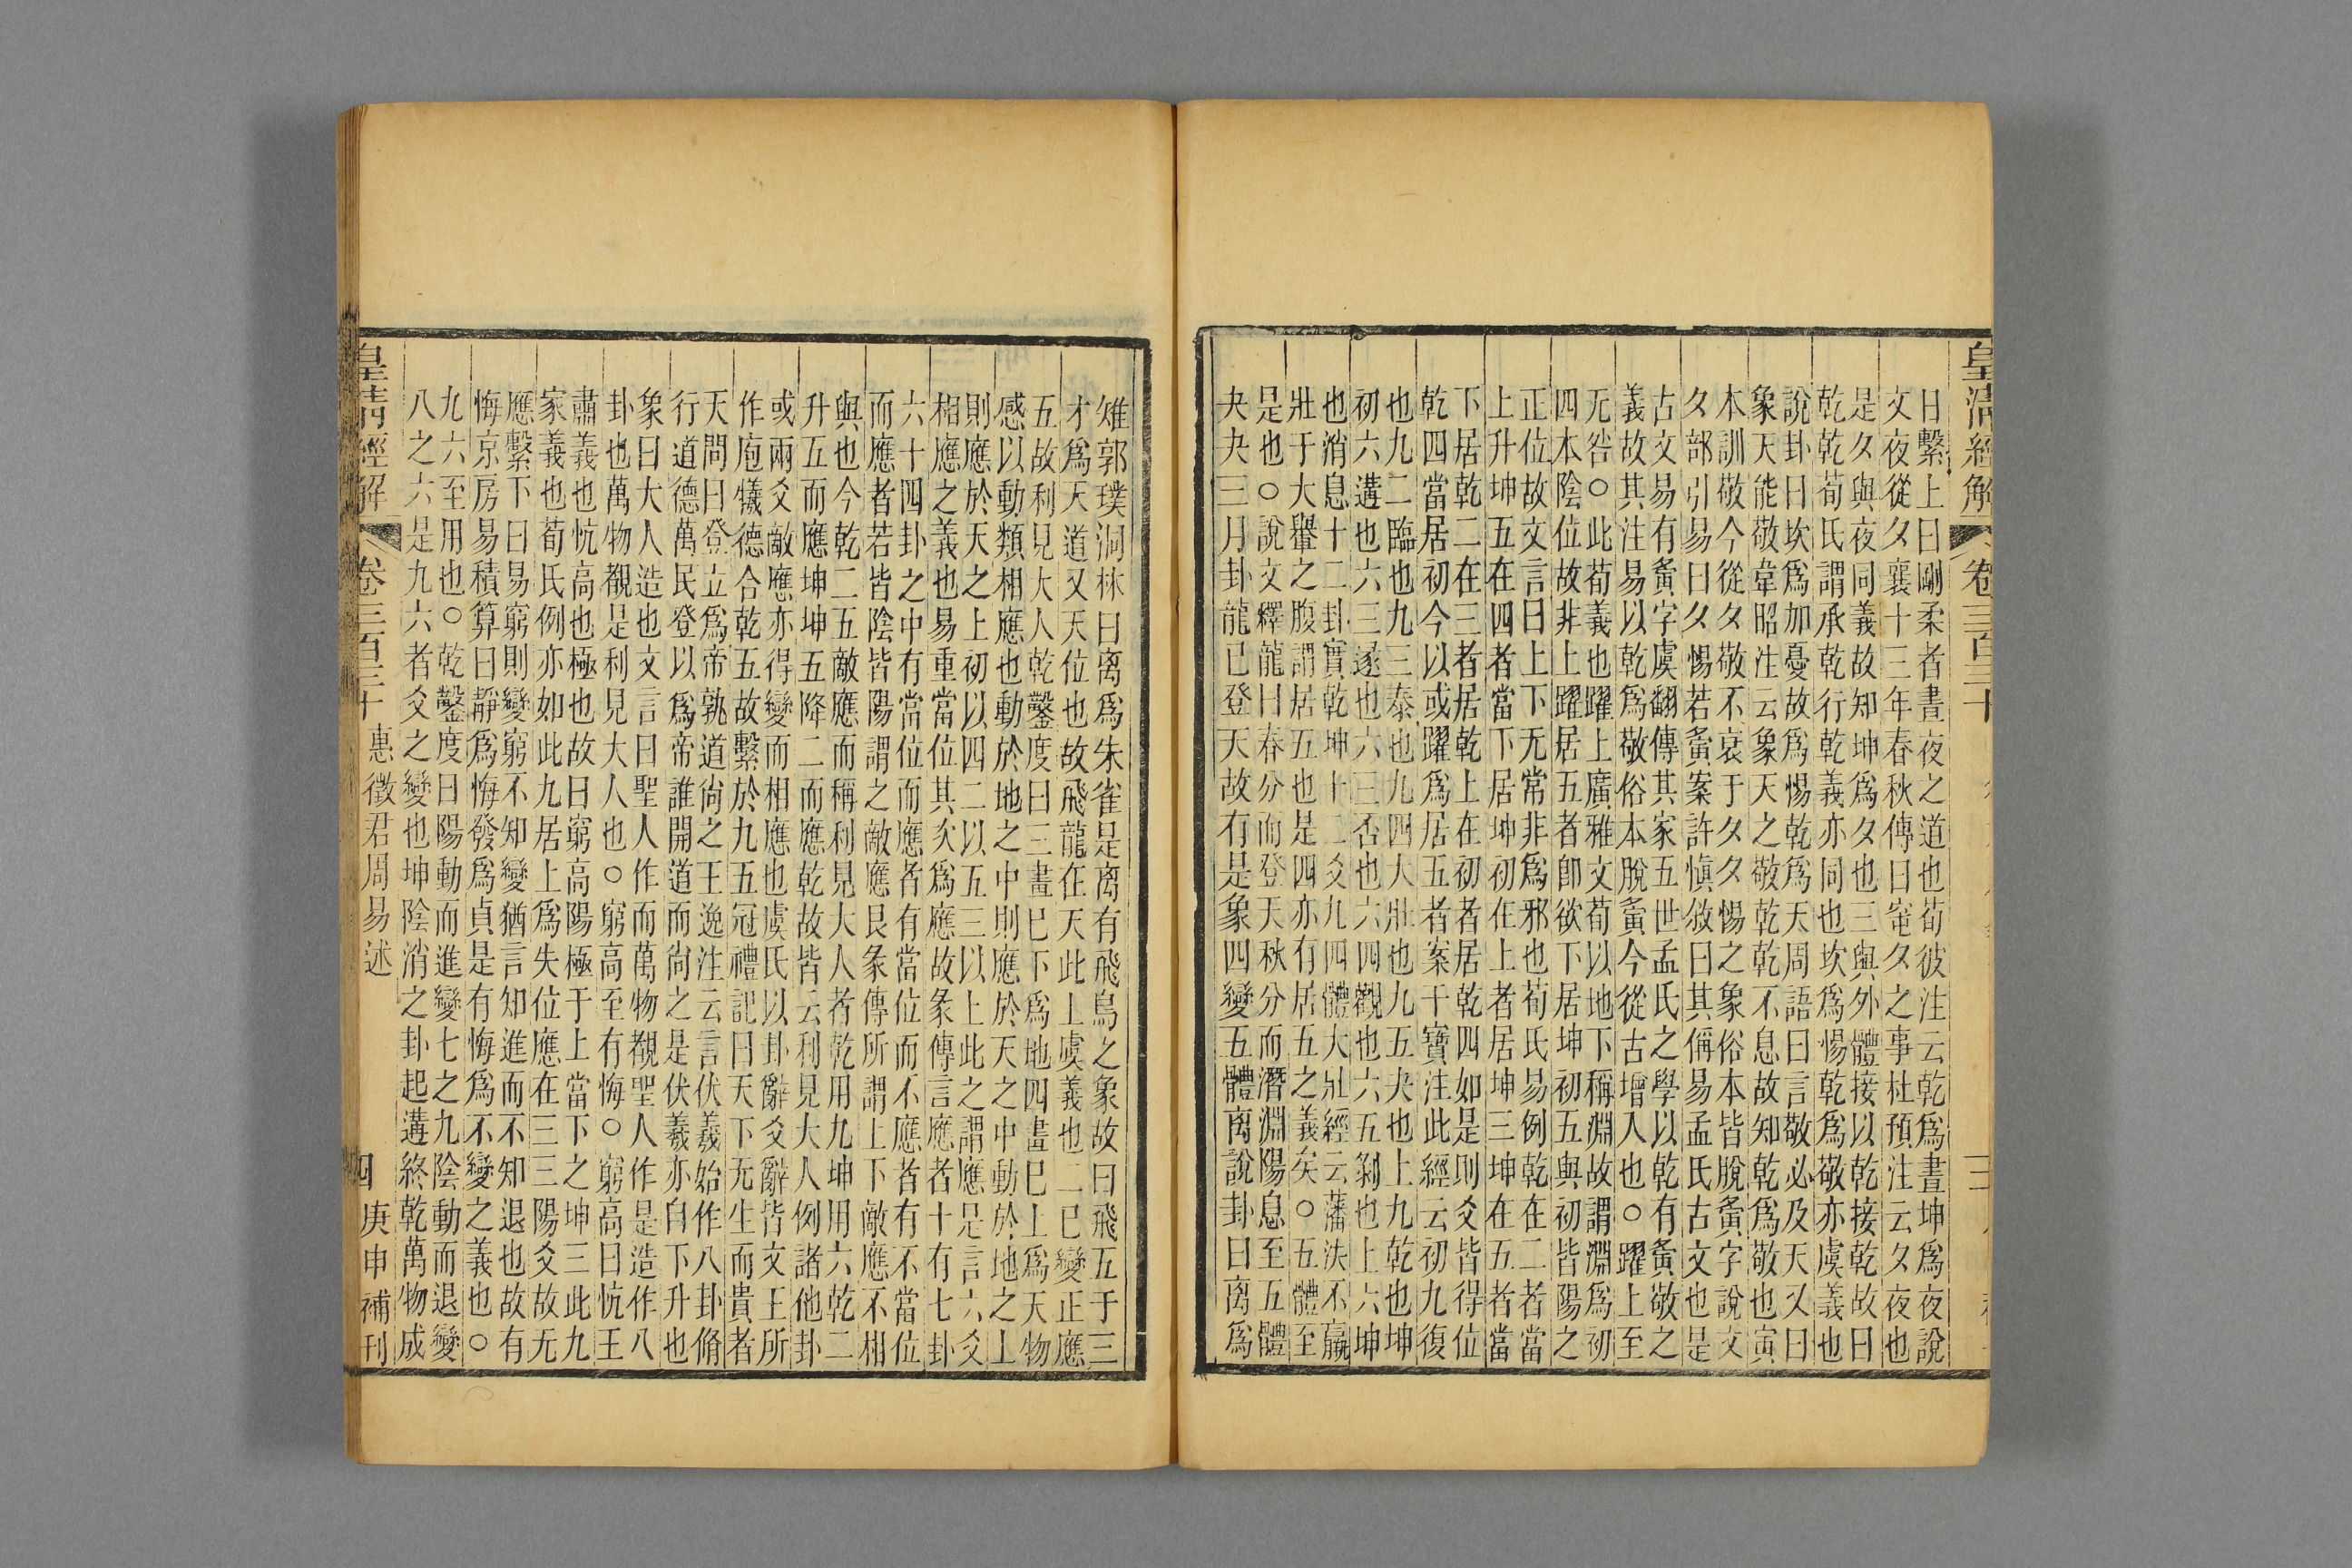 皇清經解 卷三百三十
日繫上曰剛柔者晝夜之道也荀彼注云乾爲晝坤爲夜說
文夜從夕襄十三年春秋傳曰窀夕之事杜預注云夕夜也
是夕與夜同義故知坤爲夕也三與外體接以乾接乾故曰
乾乾荀氏謂承乾行乾義亦同也坎爲惕乾爲敬亦虞義也
說卦曰坎爲加憂故爲惕乾爲天周語曰言敬必及天又曰
象天能敬韋昭注云象天之敬乾乾不息故知乾爲敬也寅
本訓敬今從夕敬不衰于夕夕惕之象俗本皆脫夤字說文
夕部引易曰夕惕若夤案許愼敘曰其偁易孟氏古文也是
古文易有夤字虞翻傳其家五世孟氏之學以乾有夤敬之
義故其注易以乾爲敬俗本脫夤今從古增入也○躍上至
无咎○此荀義也躍上廣雅文荀以地下稱淵故謂淵爲初
四本陰位故非上躍居五者卽欲下居坤初五與初皆陽之
正位故文言曰上下无常非爲邪也荀氏易例乾在二者當
上升坤五在四者當下居坤初在上者居坤三坤在五者當
下居乾二在三者居乾上在初者居乾四如是則爻皆得位
乾四當居初今以或躍爲居五者案干寶注此經云初九復
也九二臨也九三泰也九四大壯也九五夬也上九乾也坤
初六遘也六三遂也六三否也六四觀也六五剝也上六坤
也消息十二卦實乾坤十二爻九四體大壯經云藩決不羸
壯于大轝之腹謂居五也是四亦有居五之義矣○五體至
是也○說文釋龍曰春分而登天秋分而潛淵陽息至五體
夬夬三月卦龍已登天故有是象四變五體离說卦曰离爲
雉郭璞洞林曰离爲朱雀是离有飛鳥之象故曰飛五于三
才爲天道又天位也故飛龍在天此上虞義也二已變正應
五故利見大人乾鑿度曰三畫已下爲地四畫已上爲天物
感以動類相應也動於地之中則應於天之中動於地之上
則應於天之上初以四二以五三以上此之謂應是言六爻
相應之義也易重當位其次爲應故彖傳言應者十有七卦
六十四卦之中有當位而應者有當位而不應者有不當位
而應者若皆陰皆陽謂之敵應艮彖傳所謂上下敵應不相
與也今乾二五敵應而稱利見大人者乾用九坤用六乾二
升五而應坤坤五降二而應乾故皆云利見大人例諸他卦
或兩爻敵應亦得變而相應也虞氏以卦辭爻辭皆文王所
作庖犧德合乾五故繫於九五冠禮記曰天下无生而貴者
天問曰登立爲帝孰道尙之王逸注云言伏羲始作八卦脩
行道德萬民登以爲帝誰開道而尙之是伏羲亦自下升也
象曰大人造也文言曰聖人作而萬物覩聖人作是造作八
卦也萬物覩是利見大人也○窮高至有悔○窮高曰忼王
肅義也忼高也極也故曰窮高陽極于上當下之坤三此九
家義也荀氏例亦如此九居上爲失位應在三三陽爻故无
應繫下曰易窮則變窮不知變猶言知進而不知退也故有
悔京房易積算曰靜爲悔發爲貞是有悔爲不變之義也○
九六至用也○乾鑿度曰陽動而進變七之九陰動而退變
八之六是九六者爻之變也坤陰消之卦起遘終乾萬物成
皇清經解 卷三百三十 惠徵君周易述 四 庚申補刊